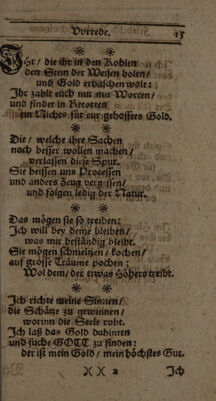 Vorrede. 15
Ihr / die ihr in den Kohlen
den Stein der Weisen holen /
und Gold erhaschen wolt:
Ihr zahlt euch nur mit Worten /
und findet in Retorten
ein Nichts für eur gehofftes Gold.
Die / welche ihre Sachen
noch besser wollen machen /
verlassen diese Spur.
Sie heissen uns Processen
und anders Zeug vergessen /
und folgen ledig der Natur.
Das mögen sie so treiben:
Ich will bey deme bleiben /
was mir beständig bleibt.
Sie mögen schmeltzen / kochen /
auf grosse Träume pochen;
Wol dem / der etwas Höhers treibt.
Ich richte meine Sinnen /
die Schätze zu gewinnen /
worinn die Seele ruht.
Ich laß das Gold dahinten
und suche GOTT zu finden:
der ist mein Gold / mein höchstes Gut.
XX 2 Ich